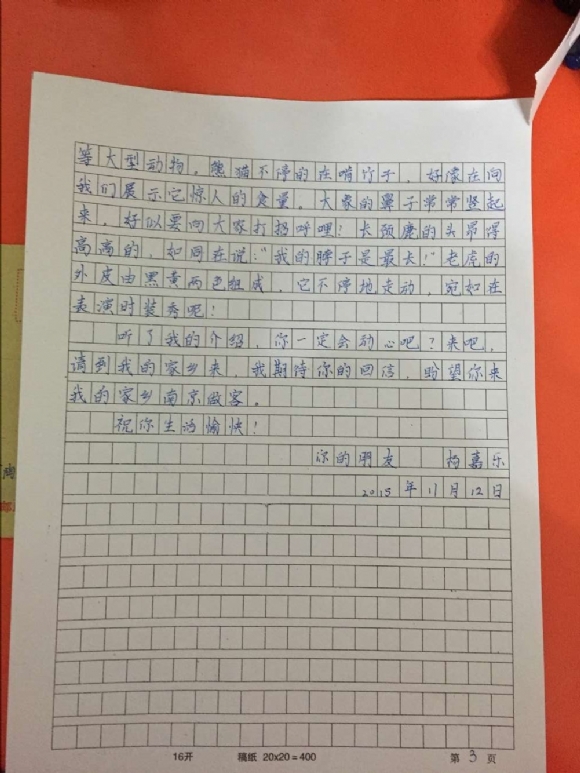 等大型动物。熊猫不停的在啃竹子，好像在向
我们展示它惊人的食量。大象的鼻子常常竖起
来，好似要向大家打招呼哩！长颈鹿的头昂得
高高的，如同在说：“我的脖子是最长！”老虎的
外皮由黑黄两色组成，它不停地走动，宛如在
表演时装秀呢！
听了我的介绍，你一定会动心吧？来吧，
请到我的家乡来，我期待你的回信，盼望你来
我的家乡南京做客。
祝你生活愉快！
你的朋友 杨嘉乐
2015年11月12日
16开 稿纸 20x20=400 第 3 页